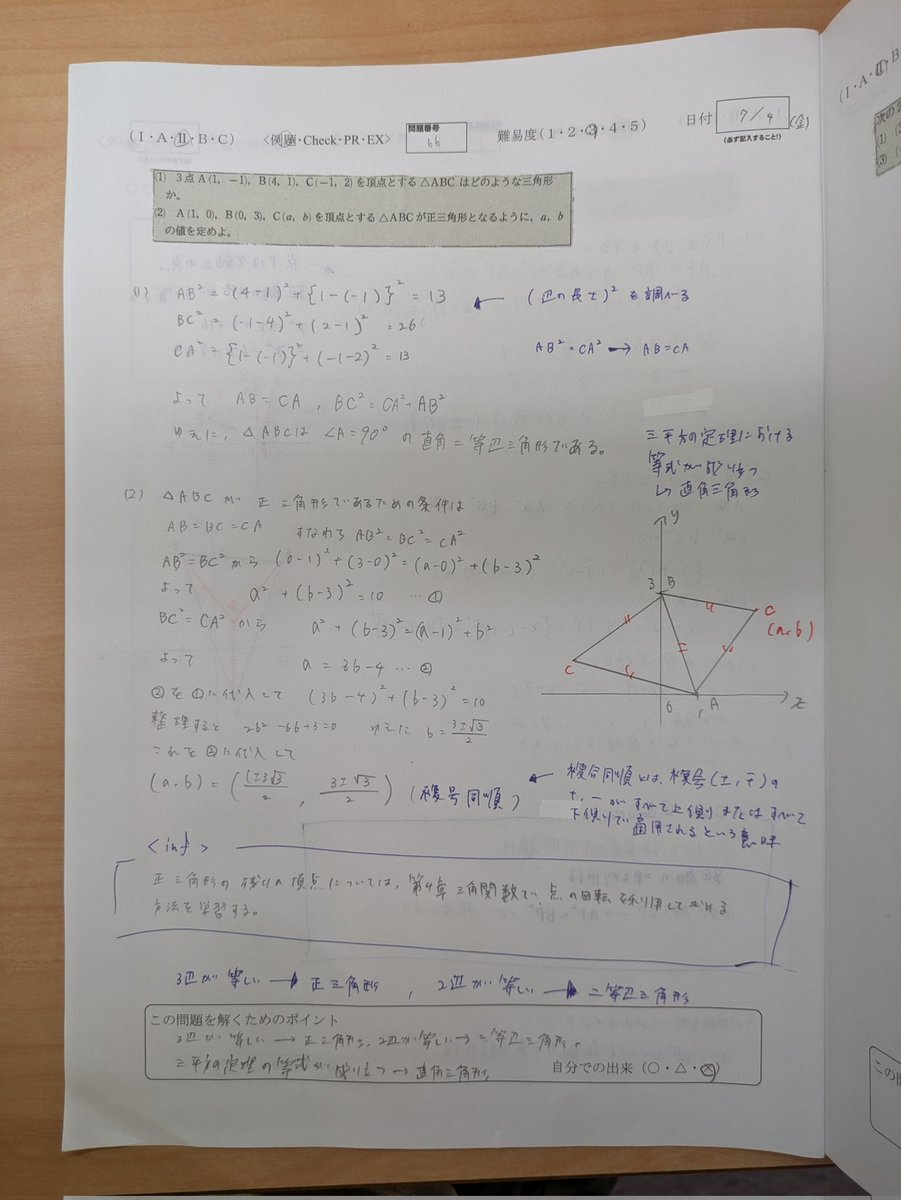 (I・A・Ⅱ・B・C) <例題・Check・PR・EX> 問題番号 66 難易度(1・2・3・4・5) 日付 7/4 (金)
(必ず記入すること!)
(1) 3点A(1, -1), B(4, 1), C(-1, 2)を頂点とする△ABCはどのような三角形
か。
(2) A(1, 0), B(0, 3), C(a, b)を頂点とする△ABCが正三角形となるように, a, b
の値を定めよ。
(1) AB² = (4-1)² + {1-(-1)}² = 13 ← (辺の長さ)²を調べる
BC² = (-1-4)² + (2-1)² = 26
CA² = {1-(-1)}² + (-1-2)² = 13 AB² = CA² → AB = CA
よって AB = CA , BC² = CA² + AB²
ゆえに, △ABCは ∠A = 90° の直角二等辺三角形である。
三平方の定理における
等式が成り立つ
↳ 直角三角形
(2) △ABCが正三角形であるための条件は
AB = BC = CA すなわち AB² = BC² = CA²
AB² = BC² から (0-1)² + (3-0)² = (a-0)² + (b-3)²
よって a² + (b-3)² = 10 … ①
BC² = CA² から a² + (b-3)² = (a-1)² + b²
よって a = 3b-4 … ②
②を①に代入して (3b-4)² + (b-3)² = 10
整理すると 2b² - 6b + 3 = 0 ゆえに b = (3±√3)/2
これを②に代入して
(a, b) = ((1±3√3)/2 , (3±√3)/2) (複号同順)
y
3 B
C
(a, b)
C
0 1 A x
← 複合同順とは、複号(±, ∓)の
+, - がすべて上側りまたはすべて
下側りで適用されるという意味
<inf>
正三角形の残りの頂点については, 第4章 三角関数で, 点の回転を利用して求める
方法を学習する。
3辺が等しい → 正三角形 , 2辺が等しい → 二等辺三角形
この問題を解くためのポイント
3辺が等しい → 正三角形, 2辺が等しい → 二等辺三角形,
三平方の定理の等式が成り立つ → 直角三角形 自分での出来 (○・△・×)
(I・A・Ⅱ・B
次の2
(1)
(3)
この問